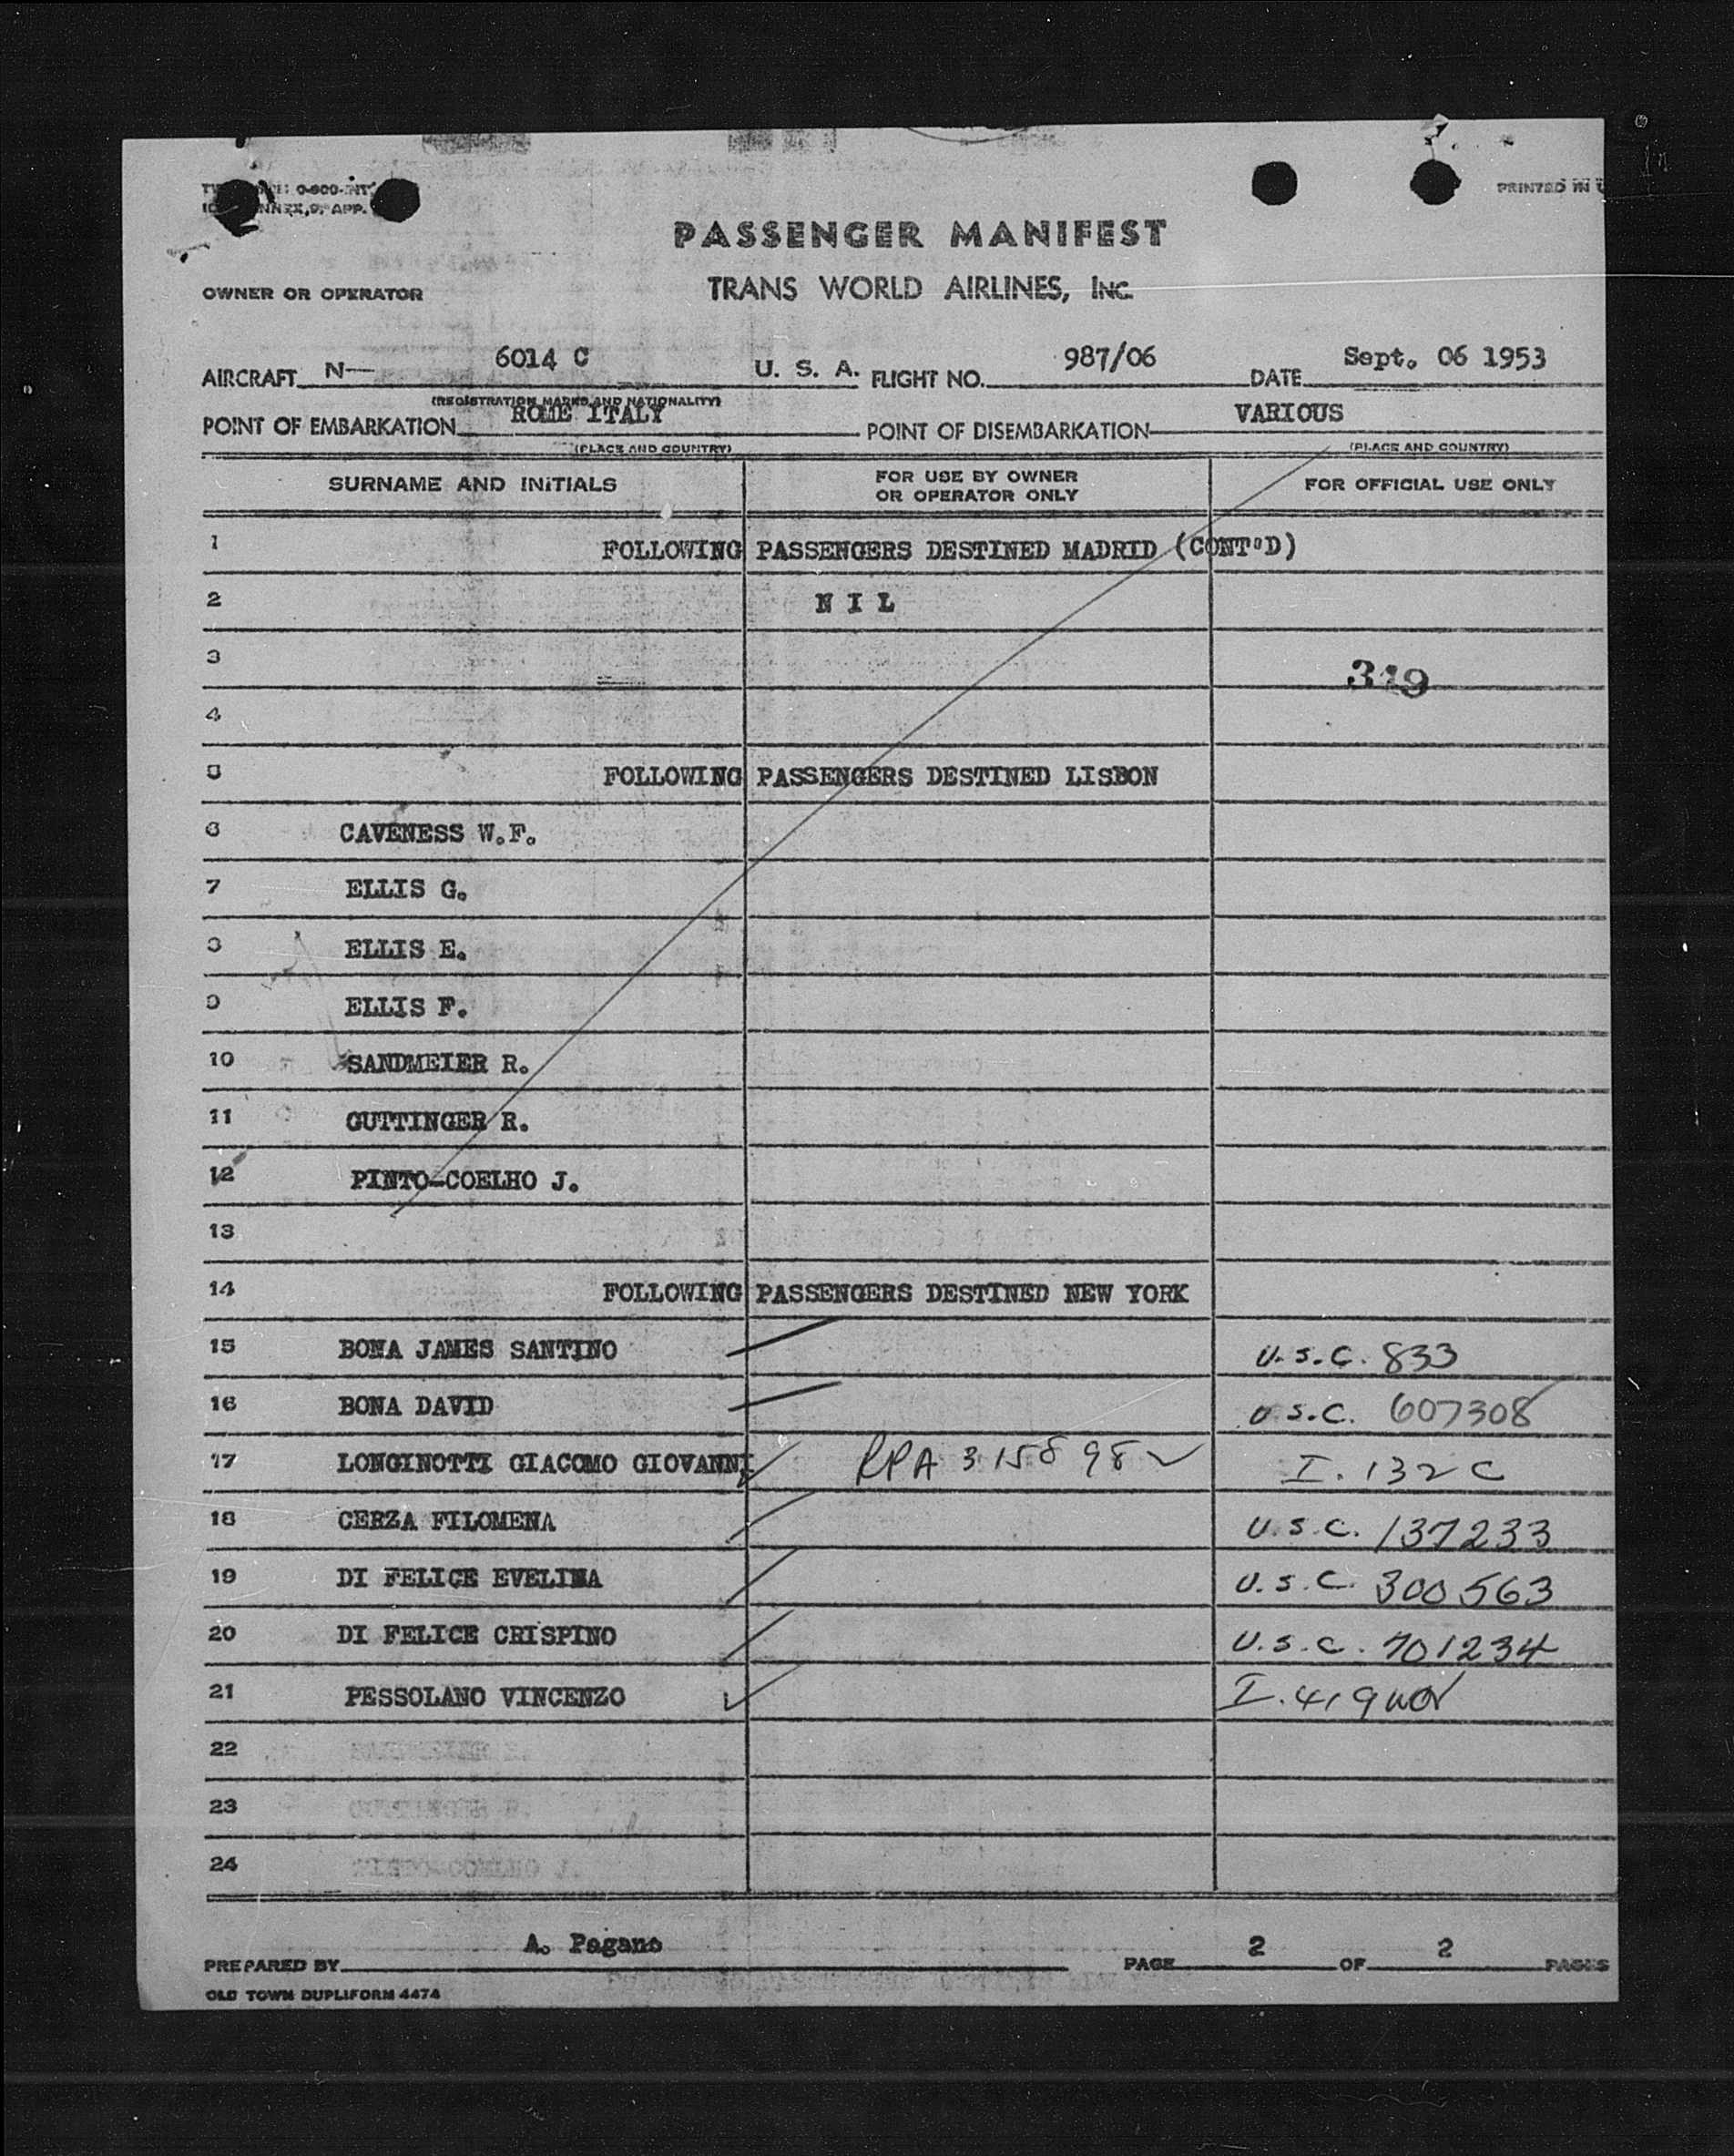 PRINTED IN
PASSENGER MANIFEST
OWNER OR OPERATOR TRANS WORLD AIRLINES, INC.
AIRCRAFT N— 6014 C U. S. A. FLIGHT NO. 987/06 DATE Sept. 06 1953
(REGISTRATION MARKS AND NATIONALITY)
POINT OF EMBARKATION ROME ITALY POINT OF DISEMBARKATION VARIOUS
(PLACE AND COUNTRY) (PLACE AND COUNTRY)
SURNAME AND INITIALS FOR USE BY OWNER OR OPERATOR ONLY FOR OFFICIAL USE ONLY
1 FOLLOWING PASSENGERS DESTINED MADRID (CONT'D)
2 N I L
3 319
4
5 FOLLOWING PASSENGERS DESTINED LISBON
6 CAVENESS W.F.
7 ELLIS G.
8 ELLIS E.
9 ELLIS F.
10 SANDMEIER R.
11 GUTTINGER R.
12 PINTO-COELHO J.
13
14 FOLLOWING PASSENGERS DESTINED NEW YORK
15 BONA JAMES SANTINO U.S.C. 833
16 BONA DAVID U.S.C. 607308
17 LONGINOTTI GIACOMO GIOVANNI RPA 315898 I. 132 C
18 CERZA FILOMENA U.S.C. 137233
19 DI FELICE EVELINA U.S.C. 300563
20 DI FELICE CRISPINO U.S.C. 701234
21 PESSOLANO VINCENZO I. 419
22
23
24
PREPARED BY A. Pagano PAGE 2 OF 2 PAGES
OLD TOWN DUPLIFORM 4474